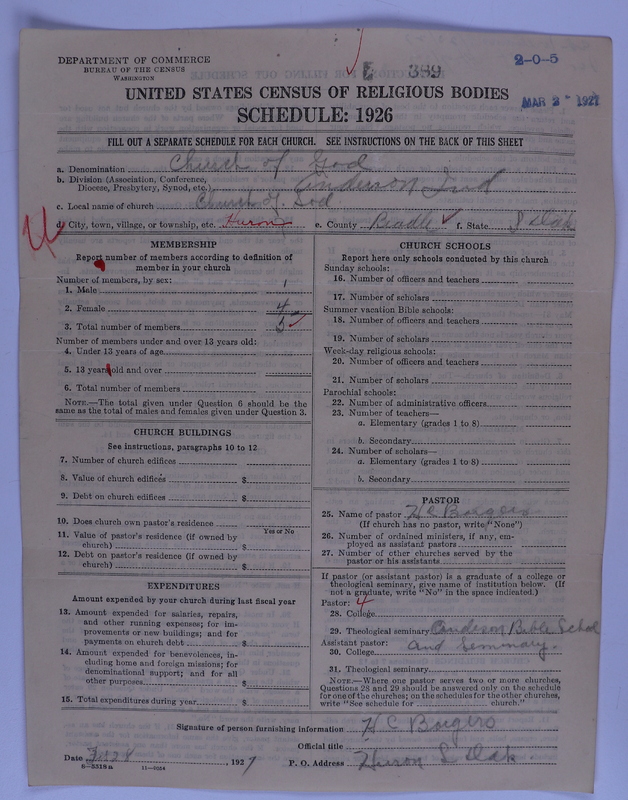 DEPARTMENT OF COMMERCE
BUREAU OF THE CENSUS
WASHINGTON
E 389
2-0-5
MAR 2 - 1927
UNITED STATES CENSUS OF RELIGIOUS BODIES
SCHEDULE: 1926
FILL OUT A SEPARATE SCHEDULE FOR EACH CHURCH. SEE INSTRUCTIONS ON THE BACK OF THIS SHEET
a. Denomination Church of God
b. Division (Association, Conference,
Diocese, Presbytery, Synod, etc.) Anderson Ind
c. Local name of church Church of God
d. City, town, village, or township, etc. Huron e. County Beadle f. State S Dak
MEMBERSHIP
Report number of members according to definition of
member in your church
Number of members, by sex:
1. Male 1
2. Female 4
3. Total number of members 5
Number of members under and over 13 years old:
4. Under 13 years of age
5. 13 years old and over
6. Total number of members
NOTE.—The total given under Question 6 should be the
same as the total of males and females given under Question 3.
CHURCH BUILDINGS
See instructions, paragraphs 10 to 12
7. Number of church edifices
8. Value of church edifices $
9. Debt on church edifices $
10. Does church own pastor's residence
Yes or No
11. Value of pastor's residence (if owned by
church) $
12. Debt on pastor's residence (if owned by
church) $
EXPENDITURES
Amount expended by your church during last fiscal year
13. Amount expended for salaries, repairs,
and other running expenses; for im-
provements or new buildings; and for
payments on church debt $
14. Amount expended for benevolences, in-
cluding home and foreign missions; for
denominational support; and for all
other purposes $
15. Total expenditures during year $
CHURCH SCHOOLS
Report here only schools conducted by this church
Sunday schools:
16. Number of officers and teachers
17. Number of scholars
Summer vacation Bible schools:
18. Number of officers and teachers
19. Number of scholars
Week-day religious schools:
20. Number of officers and teachers
21. Number of scholars
Parochial schools:
22. Number of administrative officers
23. Number of teachers—
a. Elementary (grades 1 to 8)
b. Secondary
24. Number of scholars—
a. Elementary (grades 1 to 8)
b. Secondary
PASTOR
25. Name of pastor H C Borgers
(If church has no pastor, write "None")
26. Number of ordained ministers, if any, em-
ployed as assistant pastors
27. Number of other churches served by the
pastor or his assistants
If pastor (or assistant pastor) is a graduate of a college or
theological seminary, give name of institution below. (If
not a graduate, write "No" in the space indicated.)
Pastor: 4
28. College
29. Theological seminary Anderson Bible School
Assistant pastor: and Seminary.
30. College
31. Theological seminary
NOTE.—Where one pastor serves two or more churches,
Questions 28 and 29 should be answered only on the schedule
for one of the churches; on the schedules for the other churches,
write "See schedule for church."
Signature of person furnishing information H C Borgers
Official title
Date , 1927 P. O. Address Huron S Dak
8-5318a 11-9554